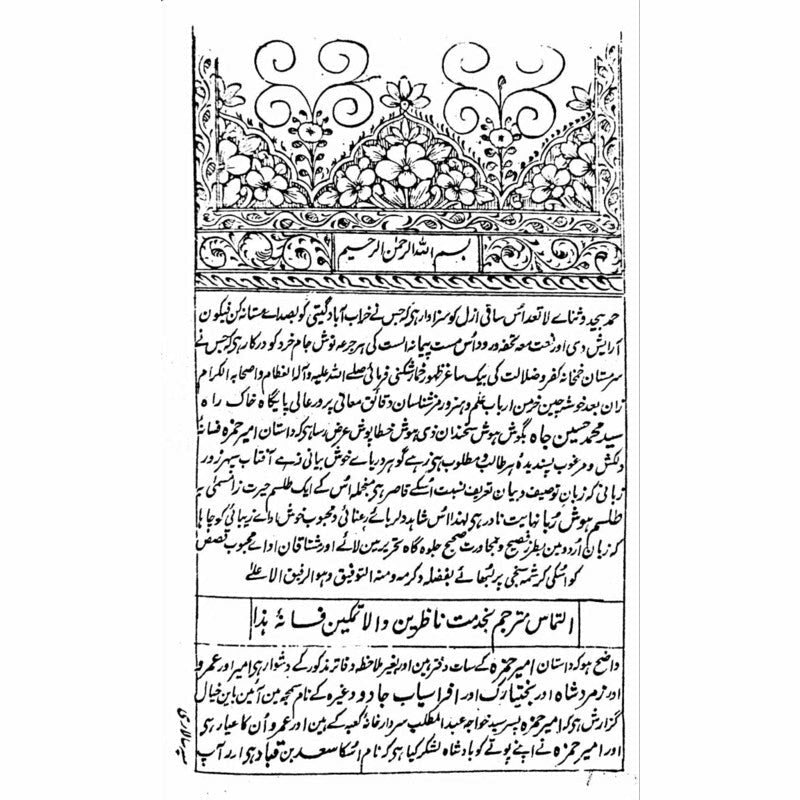 بسم اللہ الرحمٰن الرحیم
حمد بیحد و ثناے لا تعد اُس ساقی ازل کو سزاوار ہی کہ جس نے خراب آباد گیتی کو بصداے مستانہ کن فیکون
آرایش دی اور نعت معہ تحفہ درود اُس مست پیمانہ الست کی ہر جرعہ نوش جام خرد کو درکار ہی کہ جس نے
سرمستان خمخانہ کفر و ضلالت کی بیک ساغر ظہور خمار شکنی فرمائی صلے اللہ علیہ و آلہ العظام و اصحابہ الکرام
زان بعد خوشہ چین خرمن ارباب علم و ہنر و رمز شناسان دقائق معانی پرور عالی پایگاہ خاک راہ
سید محمد حسین جاہ بگوش ہوش سخندان ذی ہوش خطا پوش عرض رسا ہی کہ داستان امیر حمزہ فسانۂ
دلکش و مرغوب پسندیدۂ ہر طالب و مطلوب ہی زہے گوہر دریاے خوش بیانی زہے آفتاب سپہر زور
زبانی کہ زبان توصیف و بیان تعریف نسبت اُسکے قاصر ہی منجملہ اُس کے ایک طلسم حیرت زا مسمی بہ
طلسم ہوش رُبا نہایت نادر ہی لہذا اس شاہد دلرباے رعنائی و محبوب خوش اداے زیبائی کو چاہا
کہ زبان اُردو مین بطرز فصیح و محاورت صحیح جلوہ گاہ تحریر مین لائے اور مشتاقان اداے محبوب قصص
کو اُسکی کرشمہ سنجی پر لبھائے بفضلہ و کرمہ و منہ التوفیق و ہو الرفیق الاعلےٰ
التماس مترجم بخدمت ناظرین والا تمکین فسانۂ ہذا
واضح ہو کہ داستان امیر حمزہ کے سات دفتر ہین اور بغیر ملاحظہ دفاتر مذکور کے دشوار ہی امیر اور عمرو
اور زمرد شاہ اور بختیارک اور افراسیاب جادو وغیرہ کے نام سمجھ مین آئین باین خیال
گزارش ہی کہ امیر حمزہ پسر سید خواجہ عبد المطلب سردار خانۂ کعبہ کے ہین اور عمرو اُن کا عیار ہی
اور امیر حمزہ نے اپنے پوتے کو بادشاہ لشکر کیا ہی کہ نام اُسکا سعد بن قباد ہی اور آپ